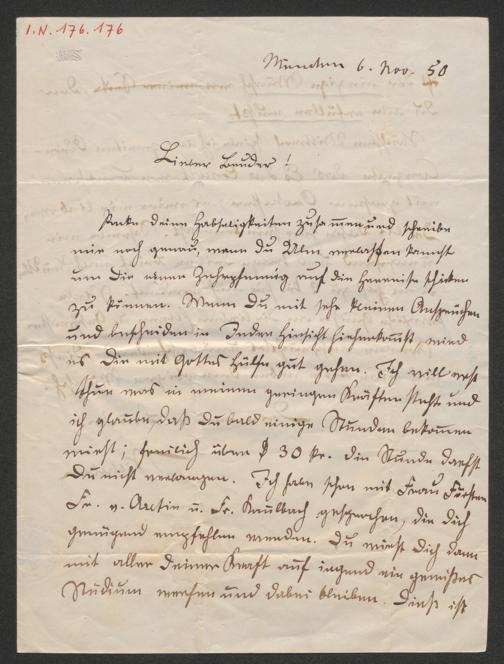 I.N. 176.176
München 6. Nov. 50
Lieber Bruder!
Packe deine Habseligkeiten zusammen und schreibe
mir noch genau, wann du Ulm verlassen kannst
um Dir einen Zehrpfennig auf die Herereise schicken
zu können. Wenn Du mit sehr kleinen Ansprüchen
und bescheiden in Jeder Hinsicht hieherkommst, wird
es Dir mit Gottes Hülfe gut gehen. Ich will erst
thun was in meinen geringen Kräften steht und
ich glaube, daß Du bald einige Stunden bekommen
wirst; freilich über 30 kr. die Stunde darfst
Du nicht verlangen. Ich habe schon mit Frau Förster
Fr. v. Aretin u. Fr. Kaulbach gesprochen, die dich
genügend empfehlen werden. Du mußt Dich dann
mit aller Deiner Kraft auf irgend ein gewißes
Studium werfen und dabei bleiben. Dieß ist